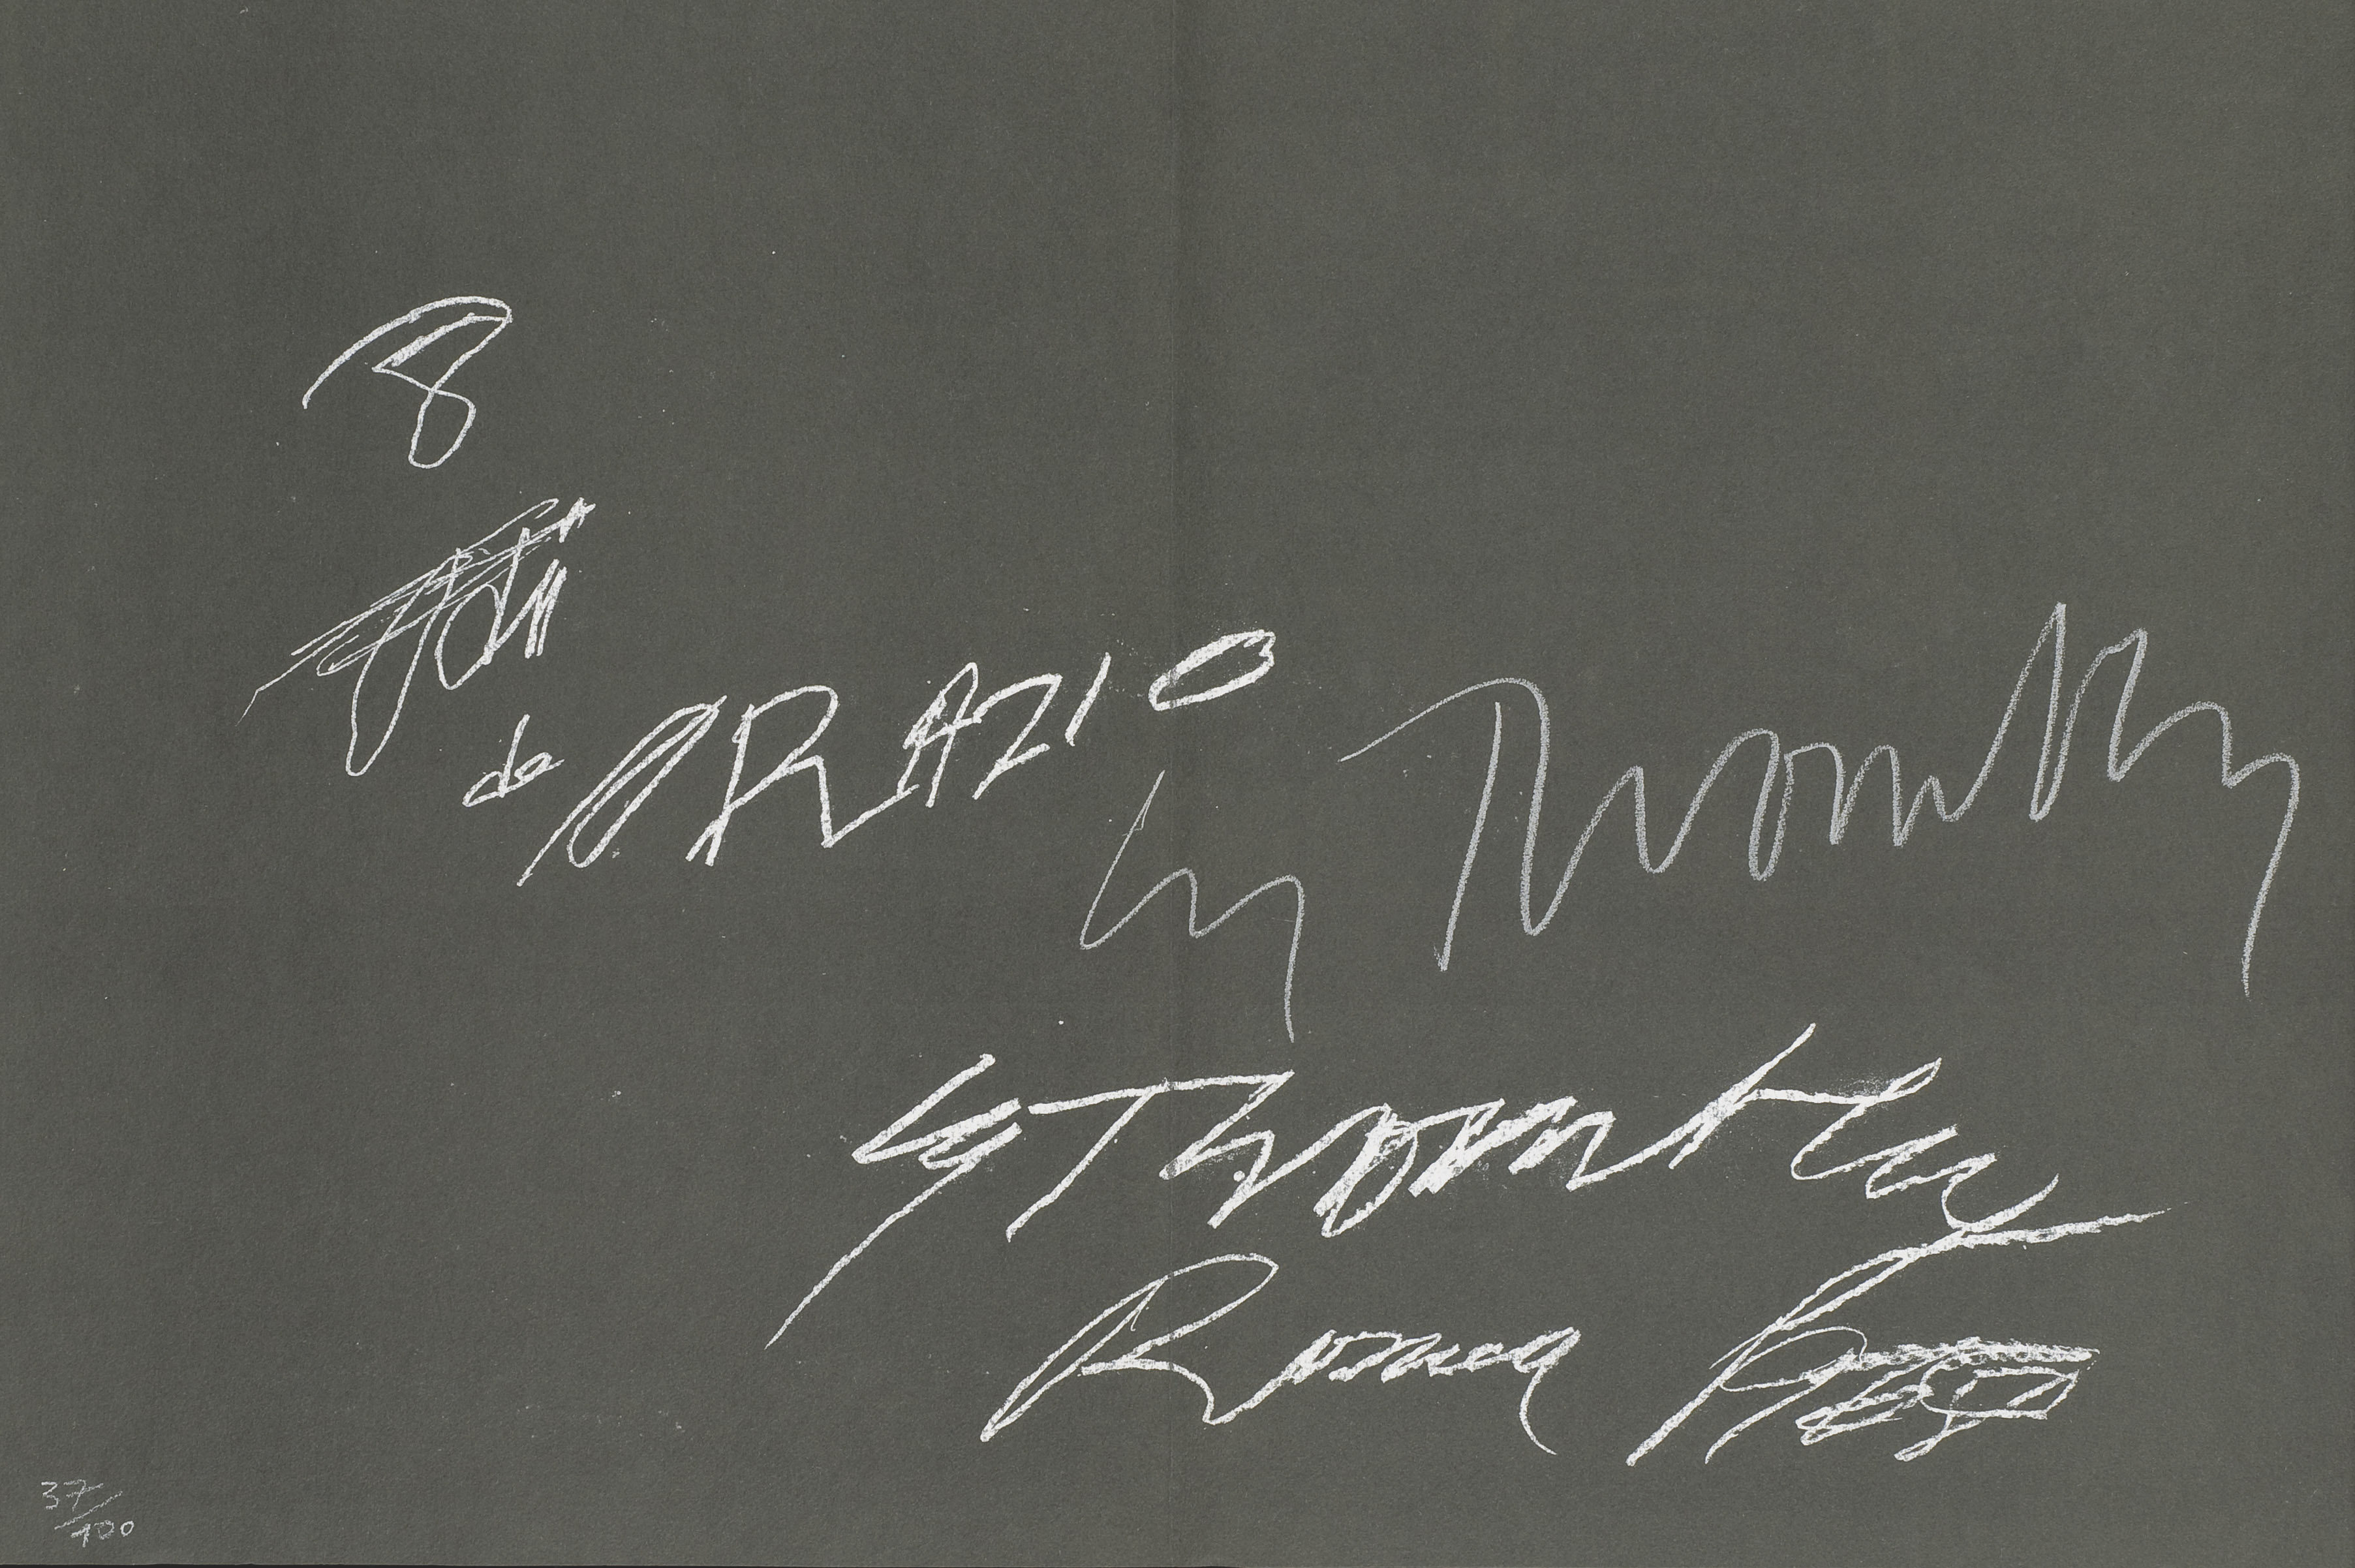 8
Odi
de ORAZIO
Cy Twombly
Cy Twombly
Roma
37/100